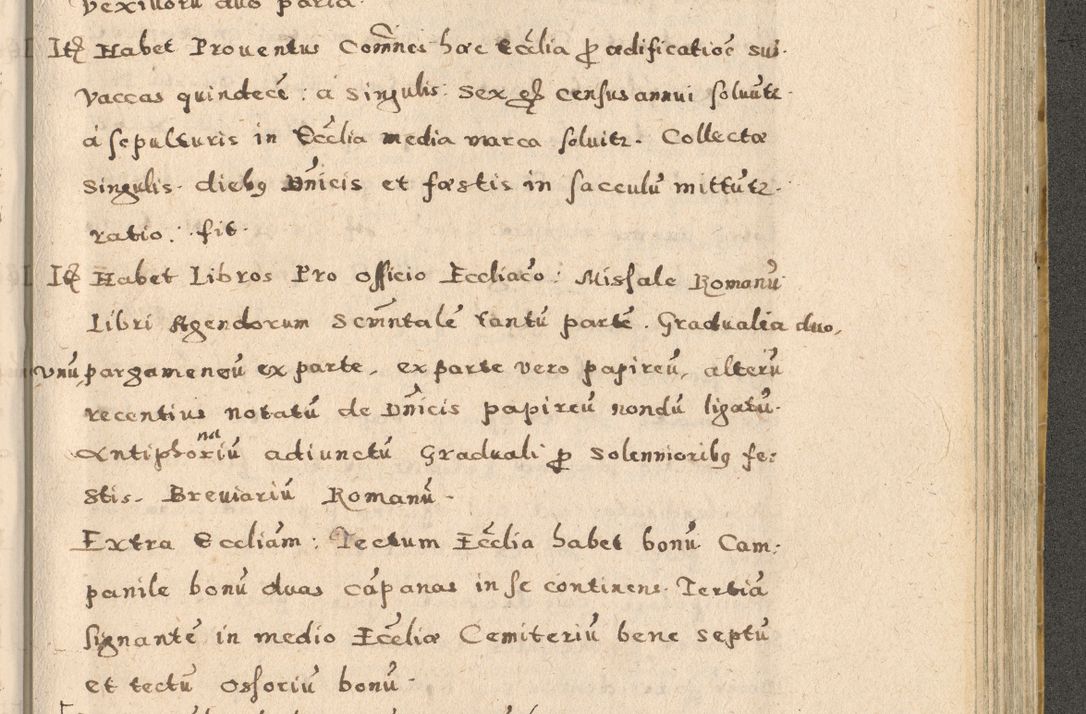 Vexilloru duo paria.
Itē Habet Prouentus Com̄nes hæc Eccłia ꝑ ædificatioē sui.
Vaccas quindecē: a singulis: sex gł census annui soluūtr.
á sepulturis in Eccłia media marca soluitr. Collectæ
singulis diebꝯ Dn̄icis et fæstis in sacculū mittūtr.
ratio. fit.
Itē Habet Libros Pro officio Eccliaco: Missale Romanū
Libri Agendorum Scm̄ntalē tantū partē. Gradualia duo,
vnū pargameneū ex parte, ex parte vero papireū, alterū
recentius notatū de Dn̄icis papireū nondū ligatū.
Antiphonariū adiunctū Graduali ꝑ solennioribꝯ fe:
stis. Breuiariū Romanū.
Extra Eccliam: Tectum Eccłia habet bonū Cam:
panile bonū duas cāpanas in se continens. Tertiā
signantē in medio Eccłiæ Cemiteriū bene septū
et tectū Ossoriū bonū.